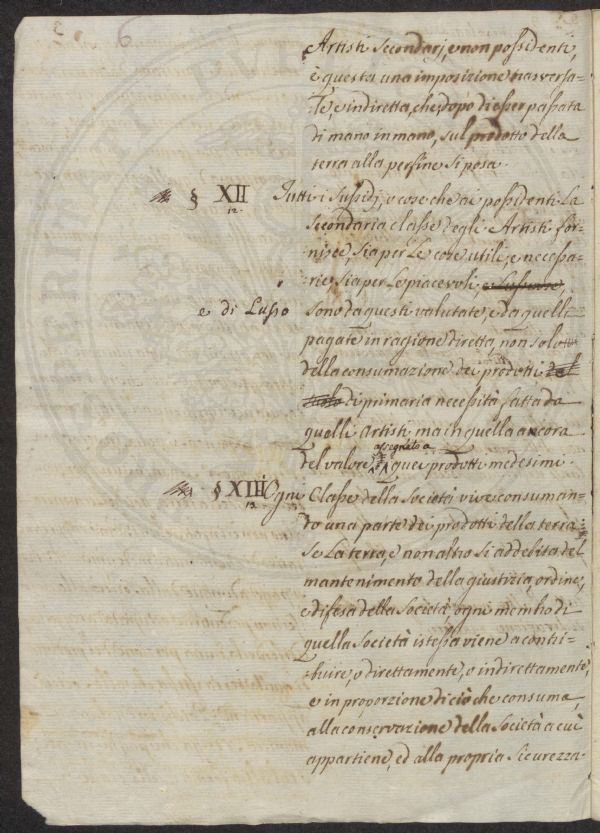 6
Artisti secondarj, e non possidenti,
è questa una imposizione trasversa=
le, e indiretta, che, dopo di esser passata
di mano in mano, sul prodotto della
terra alla perfine si posa.
§ XII Tutti i sussidj, o cose che ai possidenti la
12.
secondaria classe degli Artisti for-
nisce, sia per le cose utili, e necessa-
rie sia per le piacevoli, e Lussuose,
e di Lusso
sono da questi valutate, e da quelli
pagate in ragione diretta, non solo
della consumazione dei prodotti
di primaria necessità fatta da
quelli Artisti ma in quella ancora
assegnato a
del valore quei prodotti medesimi.
§ XIII Ogni Classe della Società vive consuman-
13.
do una parte dei prodotti della terra:
se la terra, e non altro si addebita del
mantenimento della giustizia, ordine,
e difesa della Società, ogni membro di
quella Società istessa viene a contri=
buire, o direttamente, o indirettamente,
e in proporzione di ciò che consuma,
alla conservazione della Società a cui
appartiene, ed alla propria sicurezza.